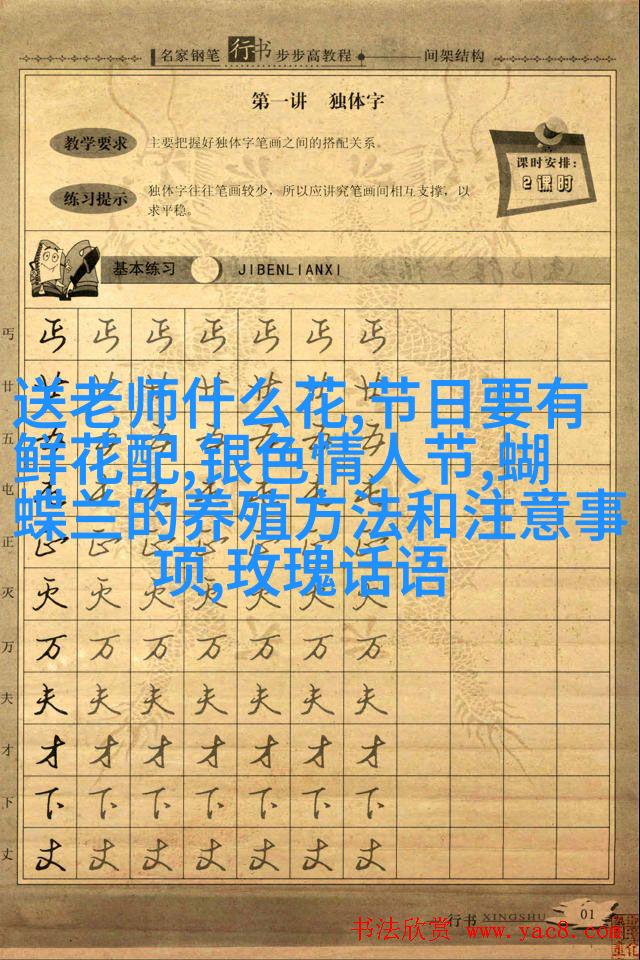 名家钢笔 行书 步步高教程 间架结构
第一讲 独体字
教学要求 主要把握好独体字笔画之间的搭配关系。
课时安排:
2课时
练习提示 独体字往往笔画较少，所以应讲究笔画间相互支撑，以
求平稳。
基本练习 JIBENLIANXI
丐 丐 丐 丐 丐 丐 丐 丐
廿
送老师什么花,节日要有
五
鲜花配,银色情人节,蝴
屯
蝶兰的养殖方法和注意事
正
项,玫瑰话语
灭 灭 灭 灭 灭 灭 灭 灭
万 万 万 万 万 万 万 万
夫 夫 夫 夫 夫 夫 夫 夫
才 才 才 才 才 才 才 才
下 下 下 下 下 下 下 下
丈 丈 丈 丈 丈 丈 丈 丈
行书 XINGSHU 01
书法欣赏 www.yac8.com